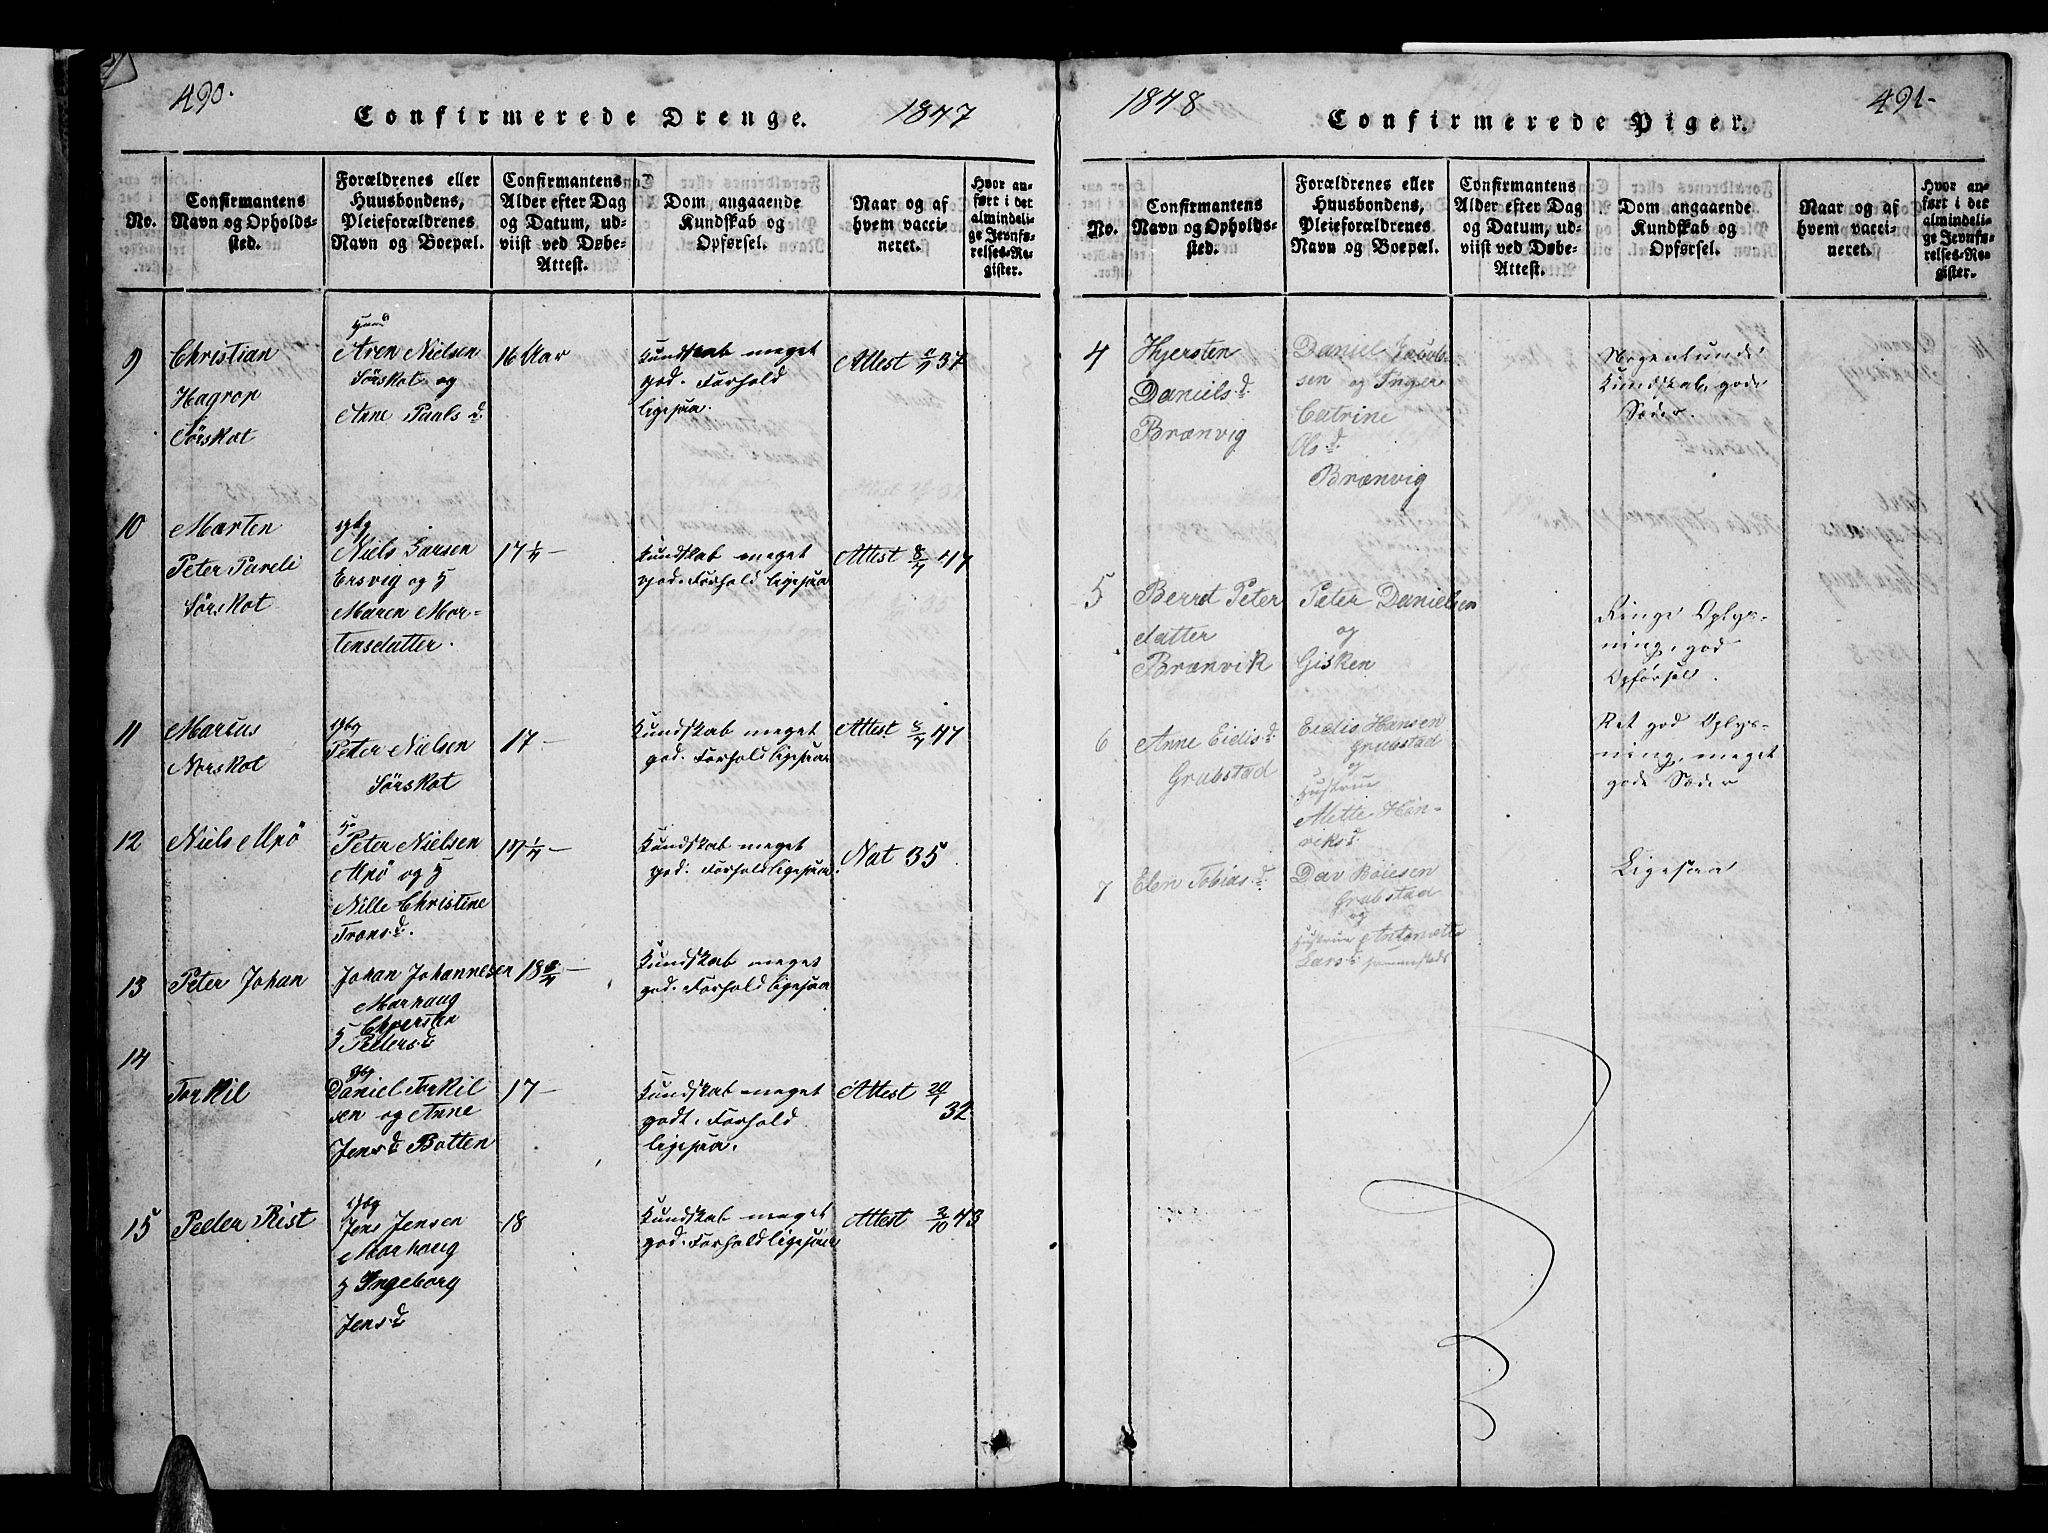 490.
Confirmerede Drenge.
1847
No.
Confirmantens
Navn og Opholds-
sted.
Forældrenes eller
Huusbondens,
Pleieforældrenes
Navn og Boepæl.
Confirmantens
Alder efter Dag
og Datum, ud-
viist ved Døbe-
Attest.
Dom angaaende
Kundskab og
Opførsel.
Naar og af
hvem vacci-
neret.
Hvor an-
ført i det
almindeli-
ge Jevnfø-
relses-Re-
gister.
9
Christian
Hagrop
Sörskot
Aren Nielsen
Sörskot og
Anne Paulsd.
16 Aar
Kundskab meget
god. Forhold
ligesaa.
Attest 37
10
Morten
Peter Pareli
Sörskot
Niels Larsen
Ersvig og H
Maren Mor-
tensdatter.
17 1/4 —
Kundskab meget
god. Forhold ligesaa
Attest 8/7 47
11
Marcus
Norskot
Peter Nielsen
Sörskot
17 —
Kundskab meget
god. Forhold ligesaa
Attest 8/7 47
12
Niels
Peter Nielsen
og H
Nille Christine
Tronsd.
1/4 —
Kundskab meget
god. Forhold ligesaa.
Nat 35
13
Peter Johan
Johan Johannesen
Marhaug
H Chjersten
Petersd
18 3/4 —
Kundskab meget
god. Forhold ligesaa
14
Torkil
Daniel Torkil
sen og Anne
Jensd Botten
17 —
Kundskab meget
godt. Forhold
ligesaa.
Attest
32
15
Peder Rist
Jens Jensen
Marhaug
H Ingeborg
Jensd
18
Kundskab meget
god. Forhold ligesaa
Attest 2/10 43
1848
Confirmerede Piger.
491-
No.
Confirmantens
Navn og Opholds-
sted.
Forældrenes eller
Huusbondens,
Pleieforældrenes
Navn og Boepæl.
Confirmantens
Alder efter Dag
og Datum, ud-
viist ved Døbe-
Attest.
Dom angaaende
Kundskab og
Opførsel.
Naar og af
hvem vacci-
neret.
Hvor an-
ført i det
almindeli-
ge Jevnfø-
relses-Re-
gister.
4
Hjersten
Daniels.d.
Brænvig
Daniel Jacob-
sen og Inger
Catrine
Ols d.
Brænvig
Nogenlunde
Kundskab, gode
Sæder.
5
Berret Peter
datter
Brænvik
Peter Danielsen
og
Gisken
Ringe Oplys-
ning, god
Opförsel.
6
Anne Eidis.d.
Grabstad
Eidis Hansen
Grabstad
og
Hustrue
Mette Hen-
riksd.
Ret god Oplys-
ning, meget
gode Sæder
7
Elen Tobias.d.
Dav Boiesen
Grabstad
og
Hustrue Antonette
Larsd
Ligesaa